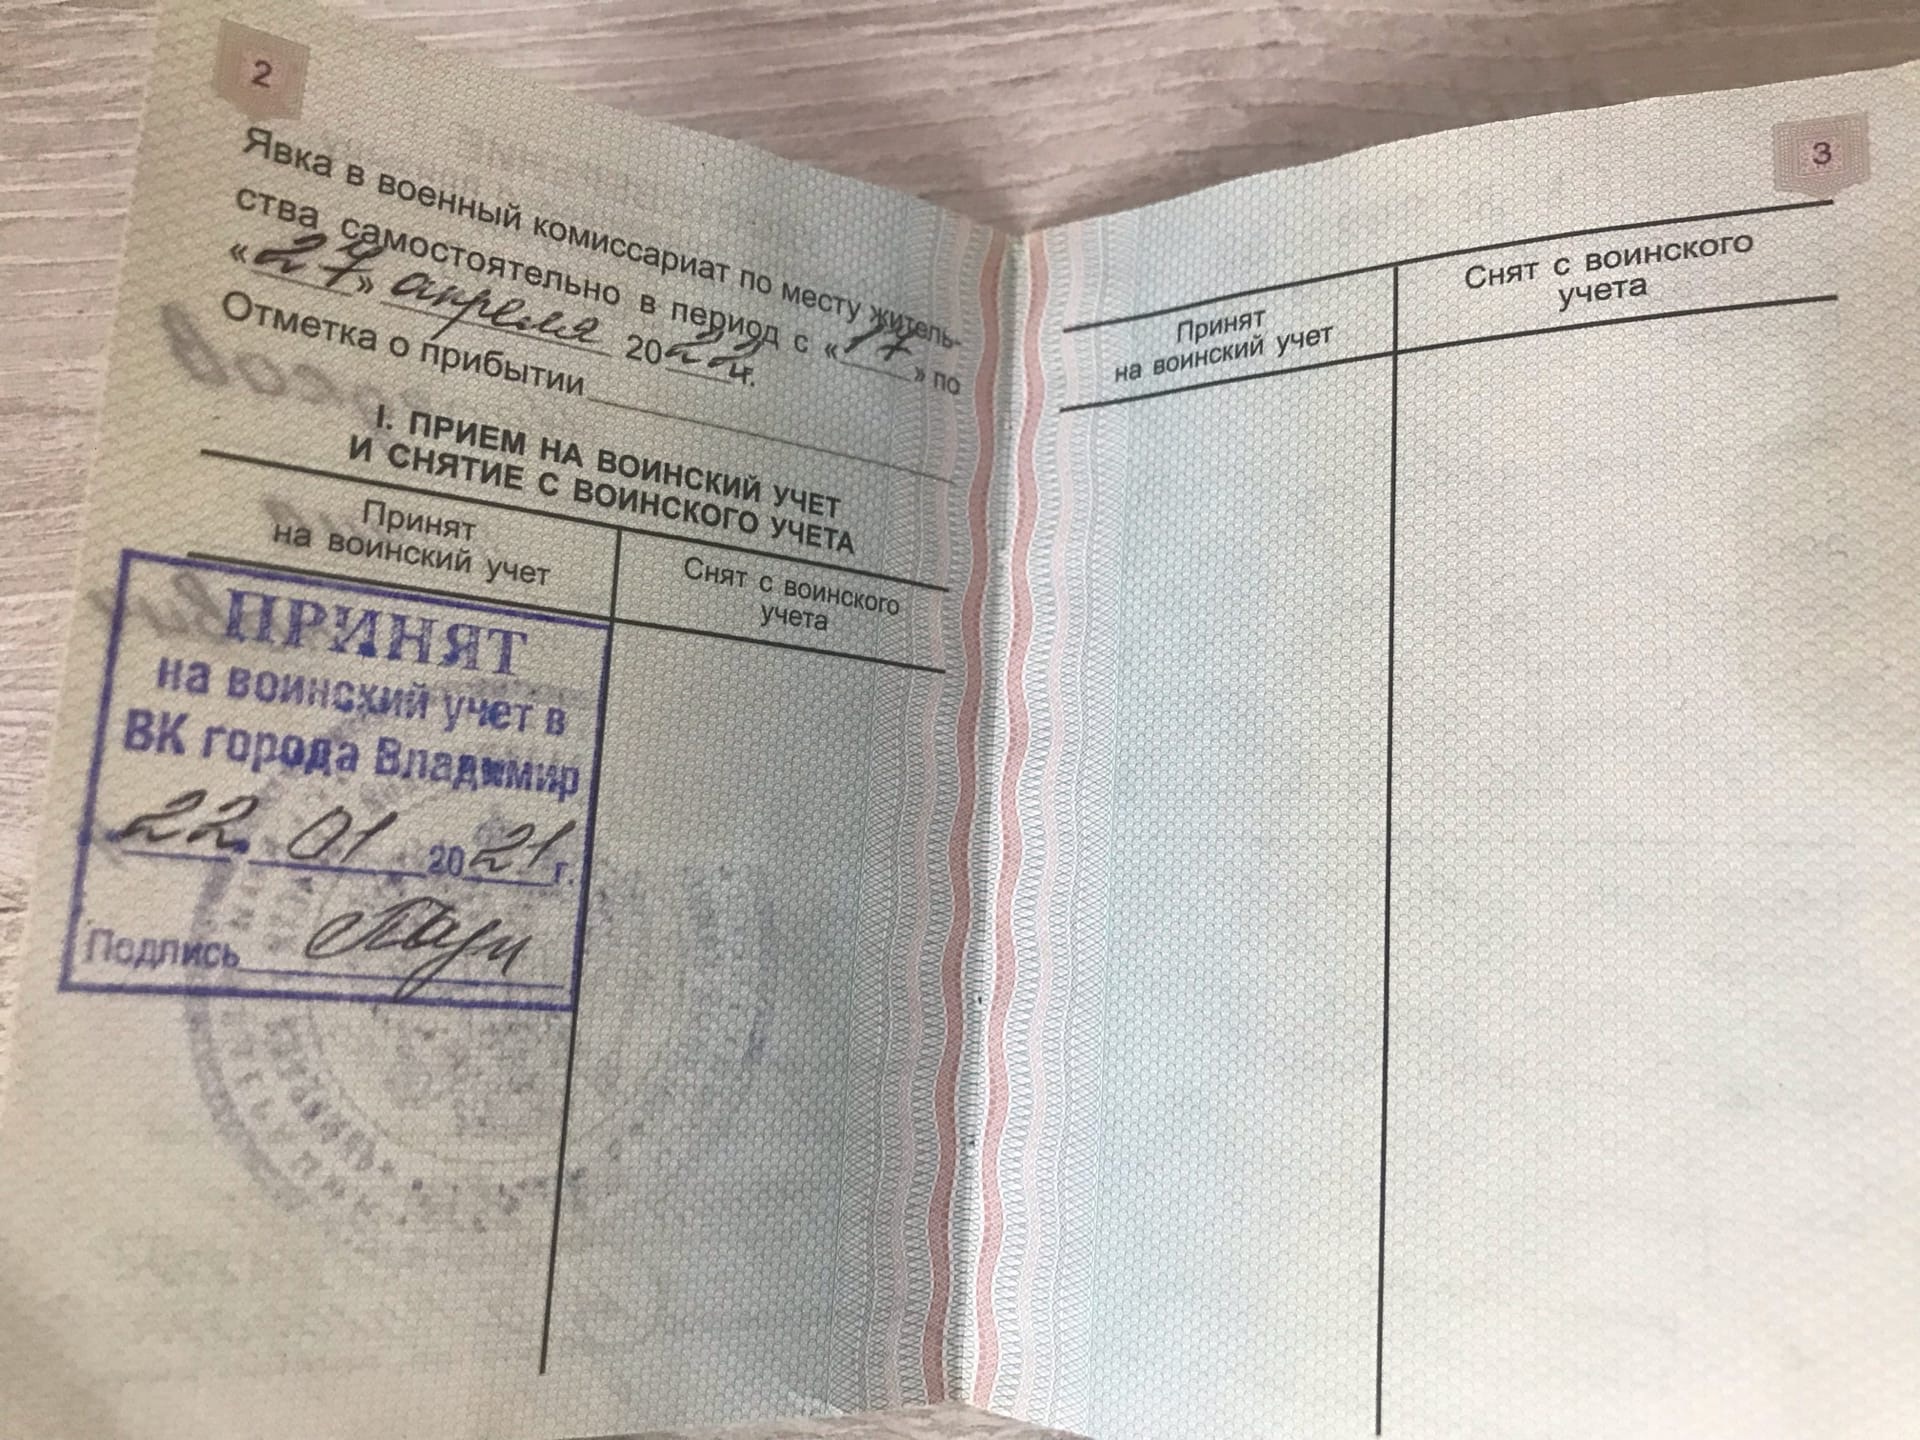 2
Явка в военный комиссариат по месту житель-
ства самостоятельно в период с «17» по
«27» апреля 2022г.
Отметка о прибытии
I. ПРИЕМ НА ВОИНСКИЙ УЧЕТ
И СНЯТИЕ С ВОИНСКОГО УЧЕТА
Принят
на воинский учет
Снят с воинского
учета
ПРИНЯТ
на воинский учет в
ВК города Владимир
«22» 01 2021г.
Подпись
3
Принят
на воинский учет
Снят с воинского
учета